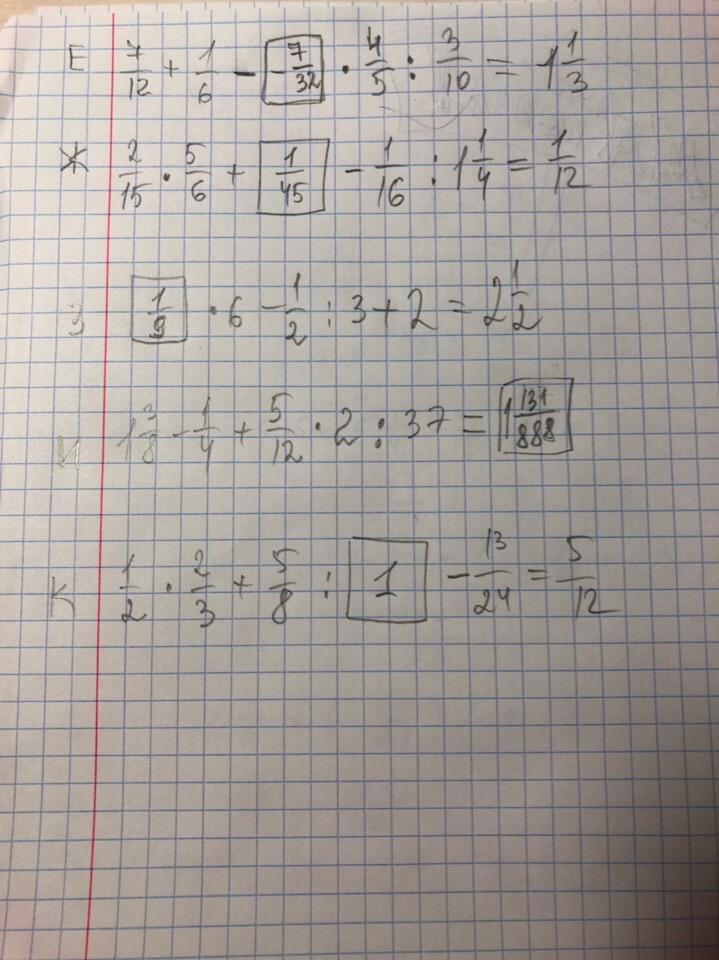 Е 7/12 + 1/6 - -7/32 · 4/5 : 3/10 = 1 1/3
Ж 2/15 · 5/6 + 1/45 - 1/16 : 1 1/4 = 1/12
З 1/9 · 6 - 1/2 : 3 + 2 = 2 1/2
И 1 3/8 - 1/4 + 5/12 · 2 : 37 = 1 131/888
К 1/2 · 2/3 + 5/8 : 1 - 13/24 = 5/12